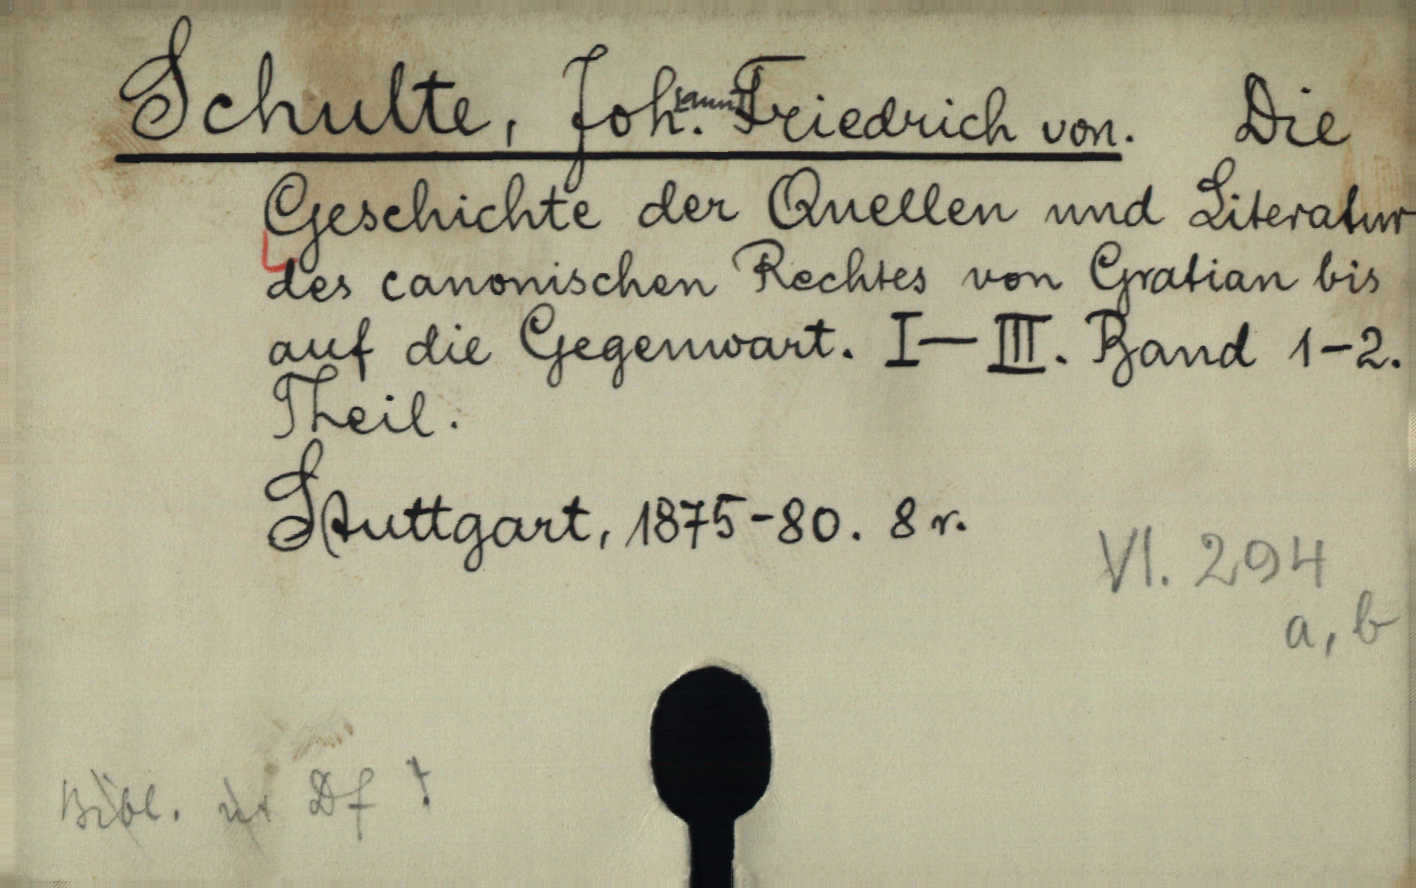 Schulte, Johann. Friedrich von. Die
Geschichte der Quellen und Literatur
des canonischen Rechtes von Gratian bis
auf die Gegenwart. I—III. Band 1-2.
Theil.
Stuttgart, 1875-80. 8 r.
VI. 294
a, b
Bibl. Df